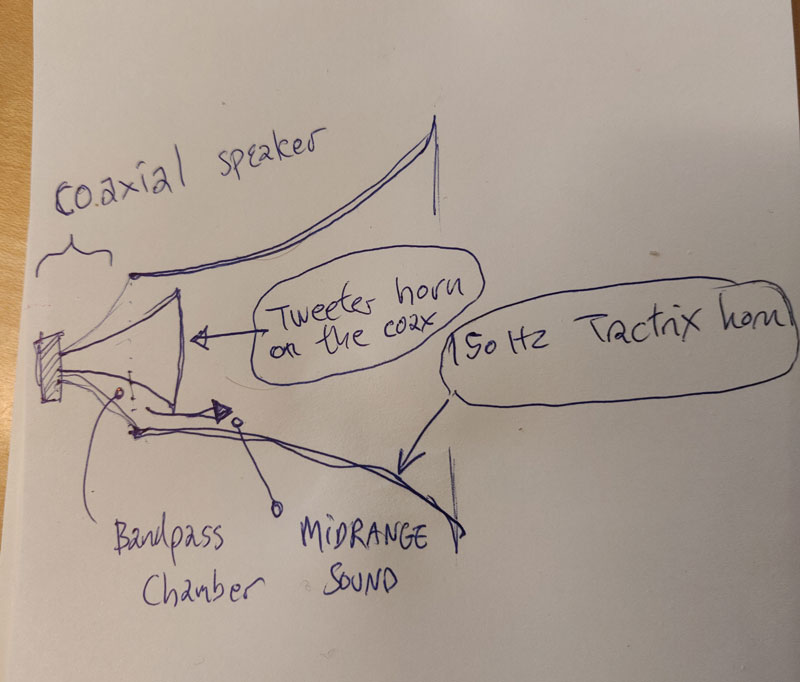 Coaxial speaker
Tweeter horn
on the coax
150 Hz Tractrix horn
Bandpass
Chamber
MiDRANGE
SOUND